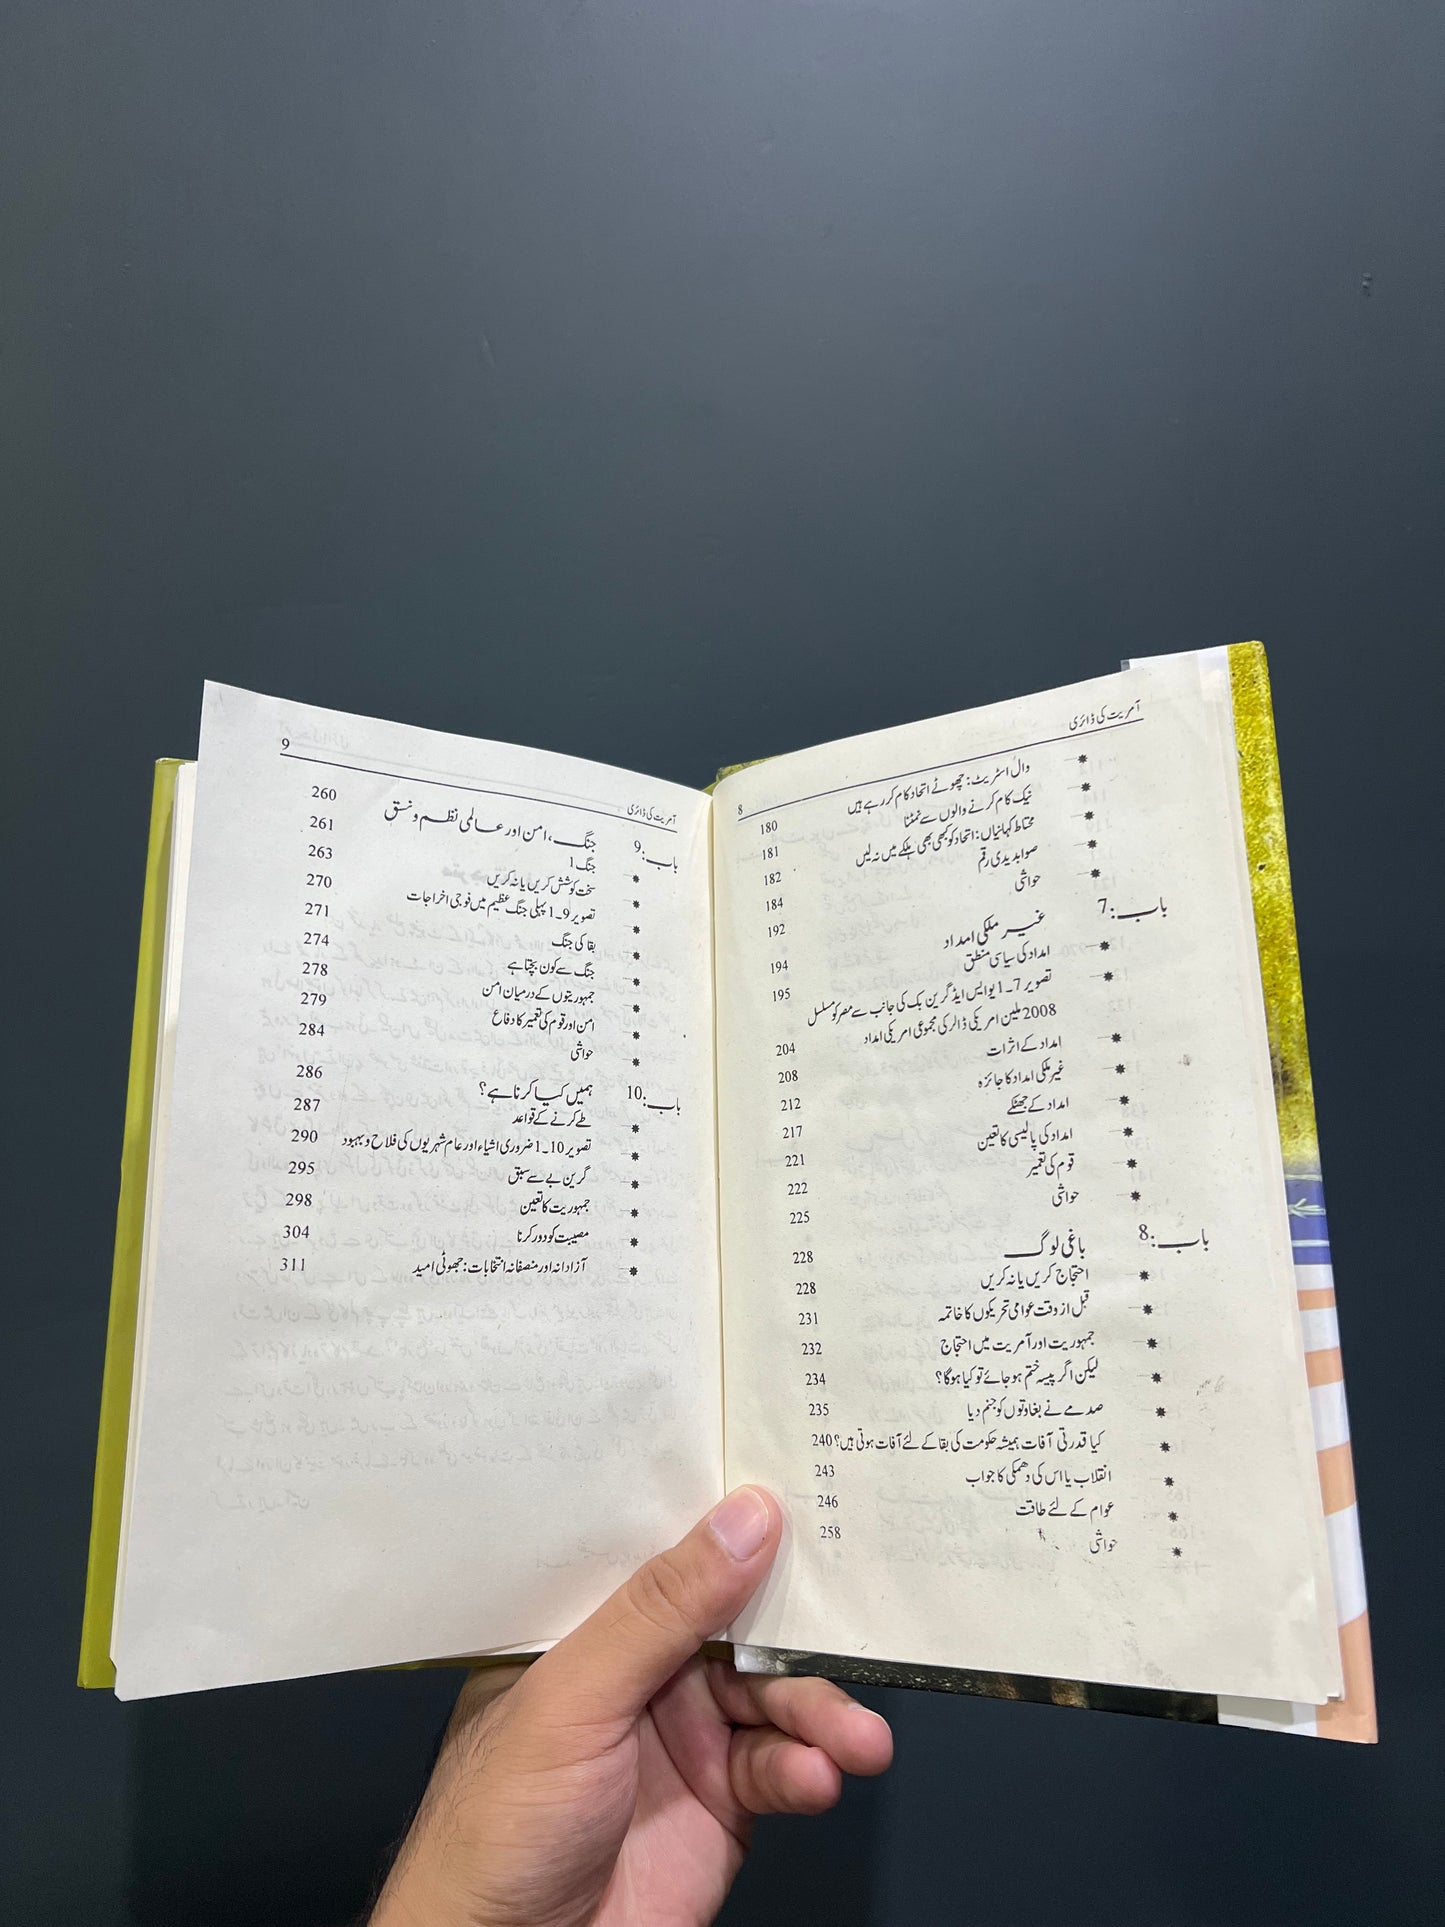 آمریت کی ڈائری
8
وال اسٹریٹ: چھوٹے اتحاد کام کر رہے ہیں 180
نیک کام کرنے والوں سے نمٹنا 181
محتاط کہانیاں: اتحاد کو کبھی بھی ہلکے میں نہ لیں 182
صوابدیدی رقم 184
حواشی 192
باب:7 غیر ملکی امداد 194
امداد کی سیاسی منطق 195
تصویر 7۔1 یو ایس ایڈ گرین بک کی جانب سے مصر کو مسلسل
2008 ملین امریکی ڈالر کی مجموعی امریکی امداد 204
امداد کے اثرات 208
غیر ملکی امداد کا جائزہ 212
امداد کے جھٹکے 217
امداد کی پالیسی کا تعین 221
قوم کی تعمیر 222
حواشی 225
باب:8 باغی لوگ 228
احتجاج کریں یا نہ کریں 228
قبل از وقت عوامی تحریکوں کا خاتمہ 231
جمہوریت اور آمریت میں احتجاج 232
لیکن اگر پیسہ ختم ہو جائے تو کیا ہوگا؟ 234
صدمے نے بغاوتوں کو جنم دیا 235
کیا قدرتی آفات ہمیشہ حکومت کی بقا کے لئے آفات ہوتی ہیں؟ 240
انقلاب یا اس کی دھمکی کا جواب 243
عوام کے لئے طاقت 246
حواشی 258
آمریت کی ڈائری
9
باب:9 جنگ، امن اور عالمی نظم و نسق 260
جنگ 1 261
سخت کوشش کریں یا نہ کریں 263
تصویر 9۔1 پہلی جنگ عظیم میں فوجی اخراجات 270
بقا کی جنگ 271
جنگ سے کون بچتا ہے 274
جمہوریتوں کے درمیان امن 278
امن اور قوم کی تعمیر کا دفاع 279
حواشی 284
باب:10 ہمیں کیا کرنا ہے؟ 286
طے کرنے کے قواعد 287
تصویر 10۔1 ضروری اشیاء اور عام شہریوں کی فلاح و بہبود 290
گرین بے سے سبق 295
جمہوریت کا تعین 298
مصیبت کو دور کرنا 304
آزادانہ اور منصفانہ انتخابات: جھوٹی امید 311